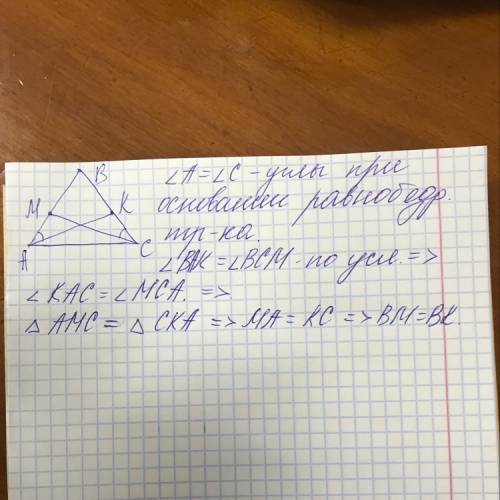 B
M
K
A
C
∠A=∠C - углы при
основании равнобедр.
тр-ка
∠BAK = ∠BCM - по усл. =>
∠KAC = ∠MCA. =>
△AMC = △CKA => MA = KC => BM = BK.